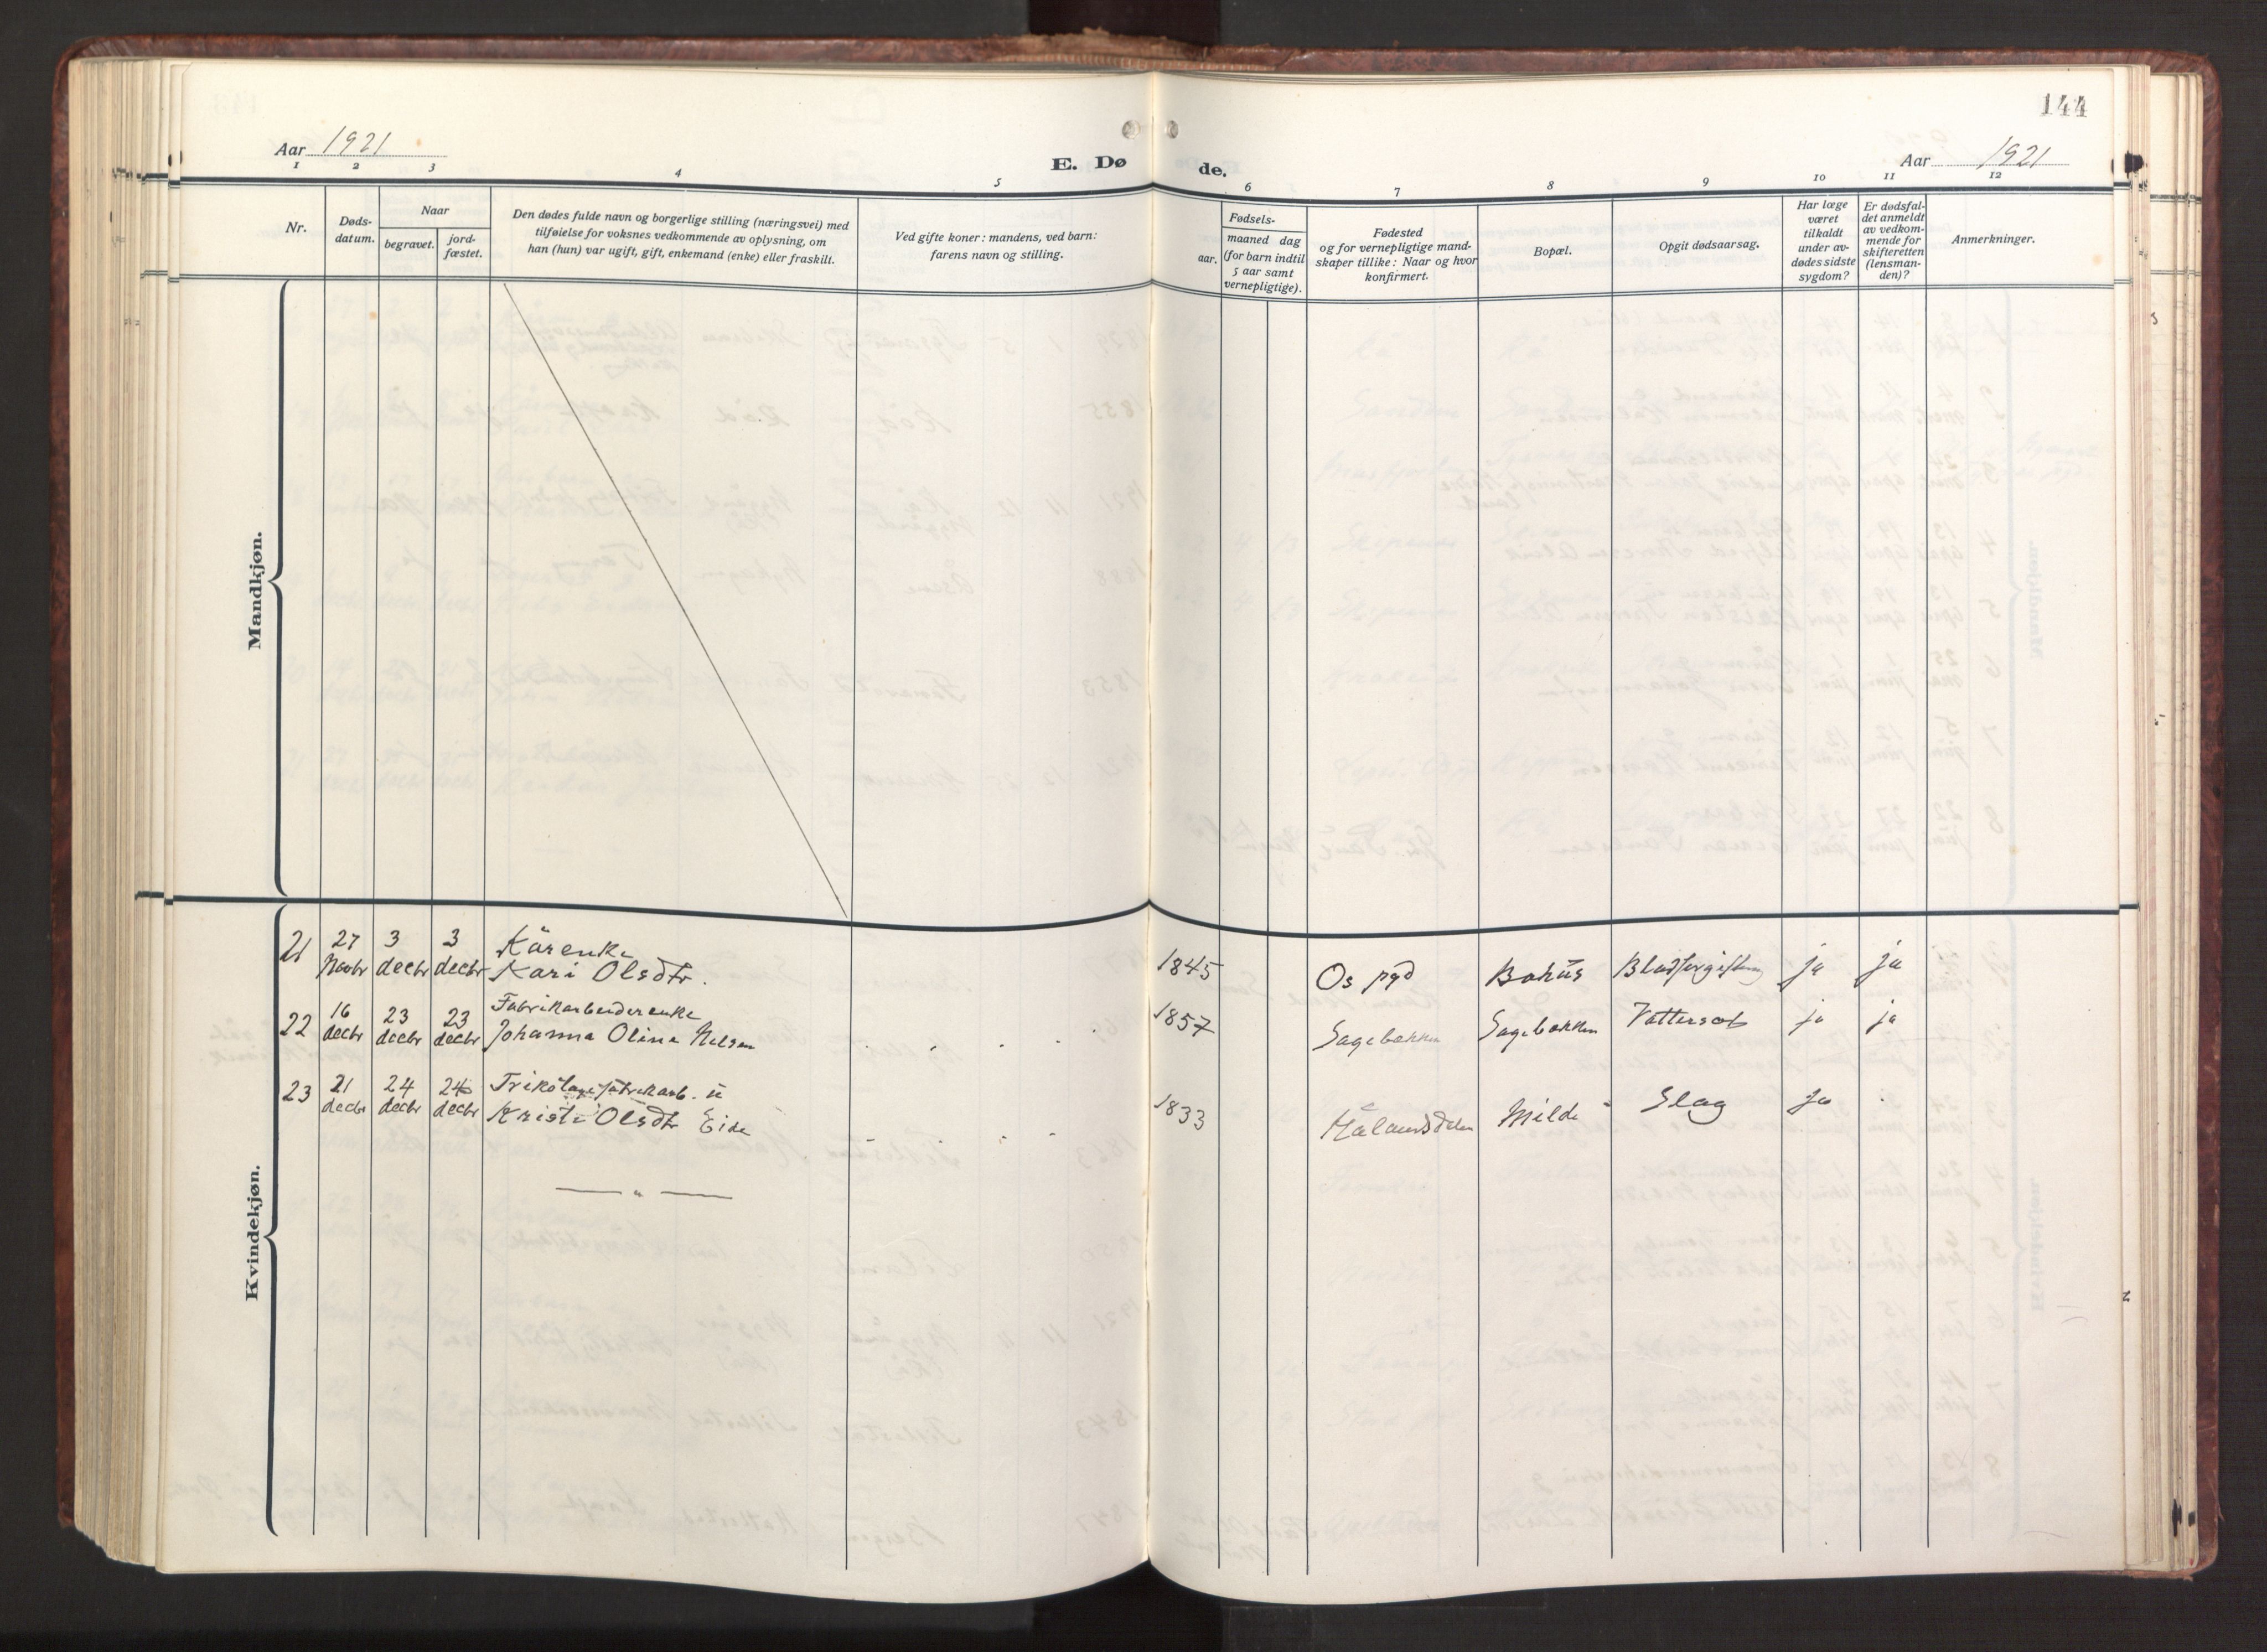 144
Aar 1921
E. Dø
de.
Aar 1921
1 2 3 4 5 6 7 8 9 10 11 12
Nr.
Døds-
datum.
Naar
begravet.
jord-
fæstet.
Den dødes fulde navn og borgerlige stilling (næringsvei) med
tilføielse for voksnes vedkommende av oplysning, om
han (hun) var ugift, gift, enkemand (enke) eller fraskilt.
Ved gifte koner: mandens, ved barn:
farens navn og stilling.
Fødsels-
aar.
maaned dag
(for barn indtil
5 aar samt
vernepligtige).
Fødested
og for vernepligtige mand-
skaper tillike: Naar og hvor
konfirmert.
Bopæl.
Opgit dødsaarsag.
Har læge
været
tilkaldt
under av-
dødes sidste
sygdom?
Er dødsfal-
det anmeldt
av vedkom-
mende for
skifteretten
(lensman-
den)?
Anmerkninger.
Mandkjøn.
Kvindekjøn.
21 27 3 3 Kårenke
Novbr decbr decbr Kari Olsdtr. 1845 Os pgd Bahus Blodforgiftning ja ja
22 16 23 23 Fabrikarbeiderenke
decbr decbr decbr Johanna Olina Nelsen 1857 Sagebakken Sagebakken Vattersot ja ja
23 21 24 24 Trikotagefabrikarb. u
decbr decbr decbr Kristi Olsdtr Eide 1833 Hålandsdalen Milde Slag ja